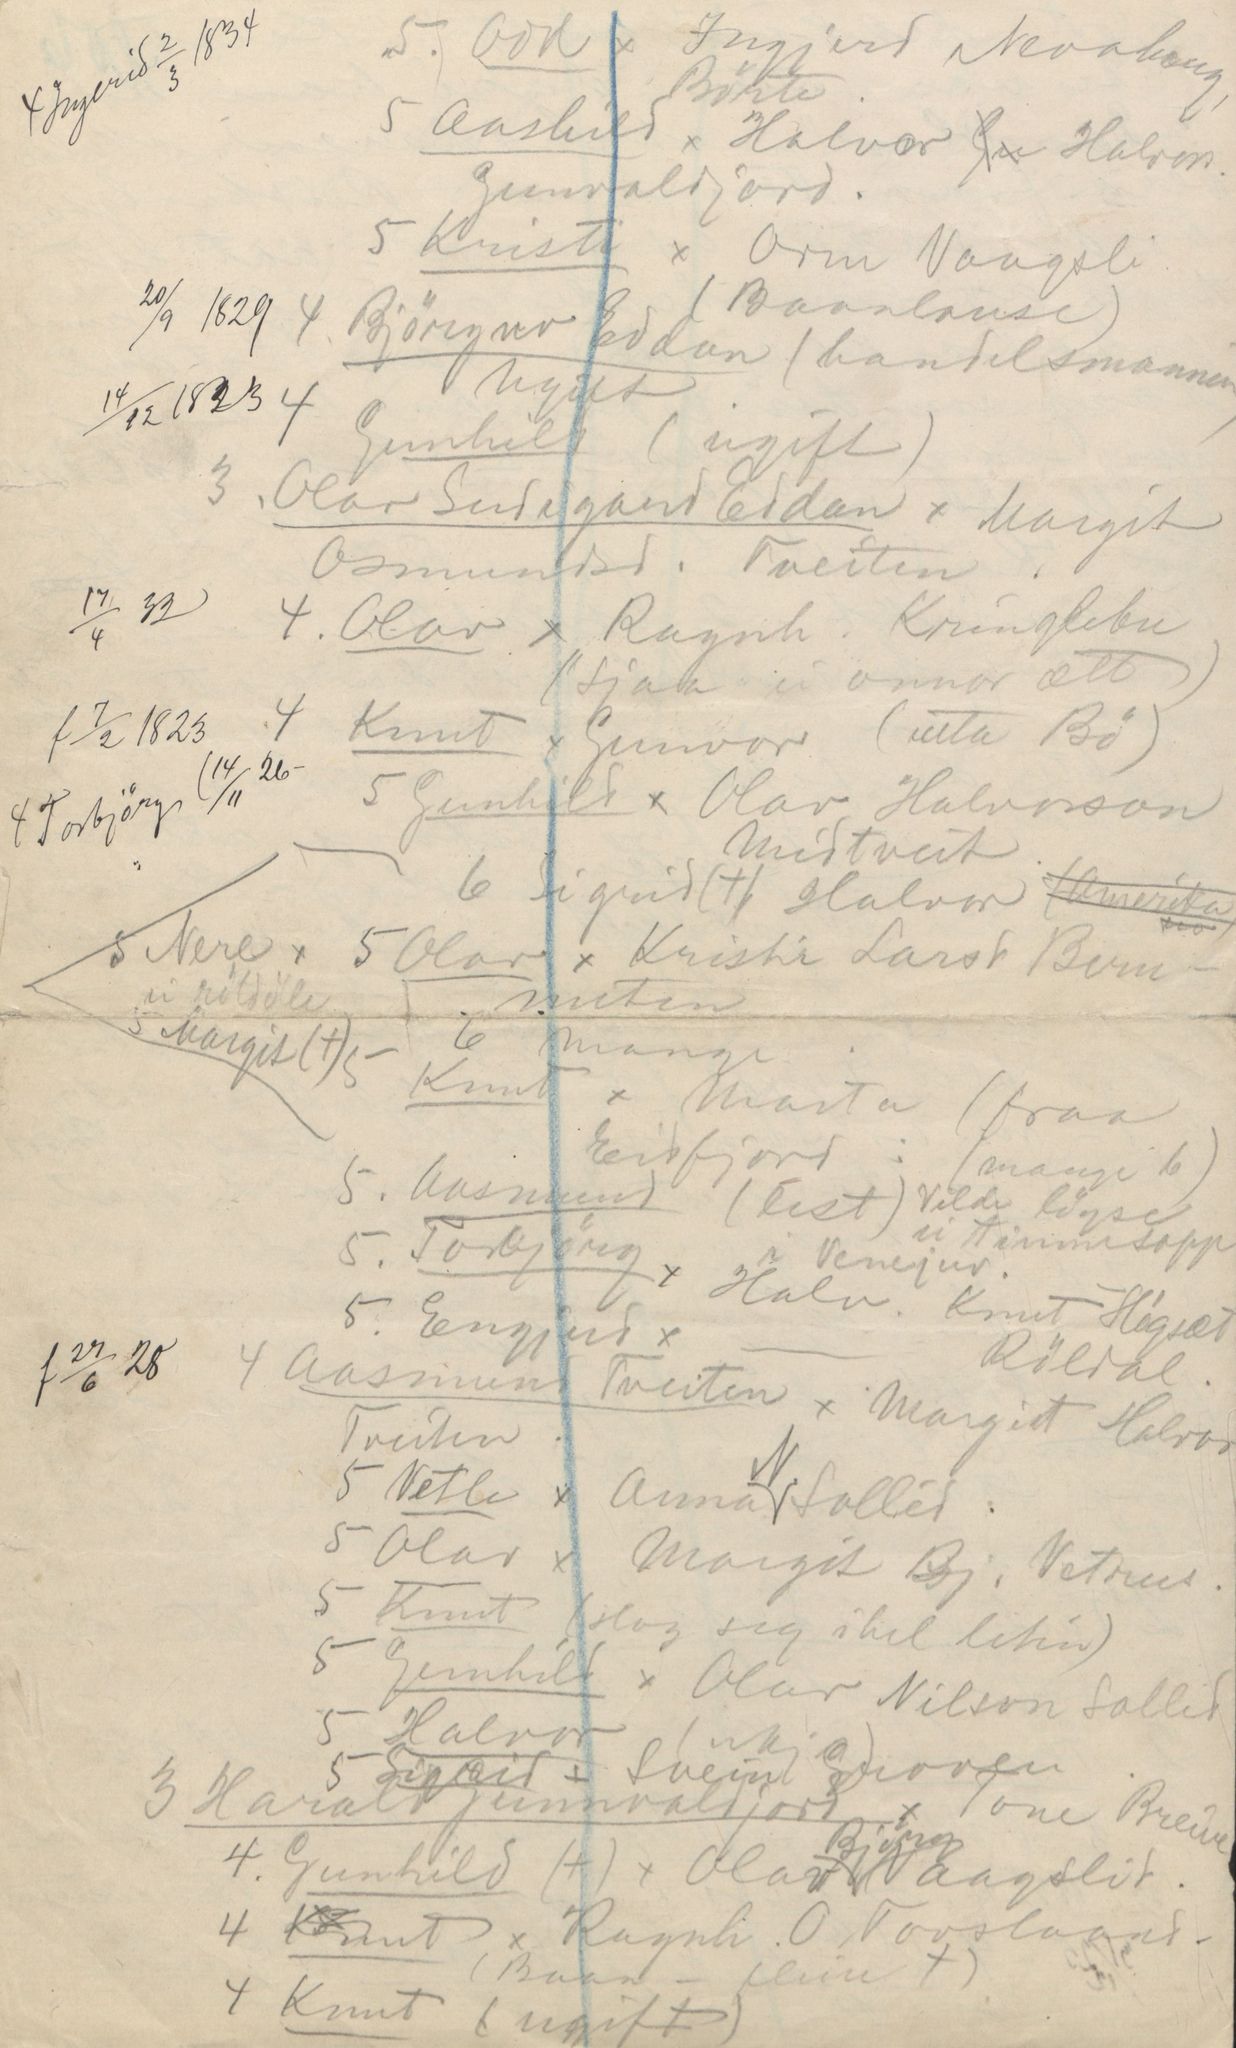 4 Ingerid 2/3 1834
5. Odd x Ingjerd Nevahaug,
Börte.
5 Aashild x Halvor Halvors.
Gunvaldjord.
5 Kristi x Orm Vaagsli
(Baanlause)
20/9 1829 4. Björguv Eddan (handelsmannen)
Ugift
14/12 1823 4 Gunhild (ugift)
3. Olav Sudigard Eddan x Margit
Osmundsd. Tveiten.
17/4 32 4. Olav x Ragnh. Kringlebu
(Sjaa i annor ætt)
f 7/2 1823 4 Knut x Gunvor (utta Bö)
4 Torbjörg (14/11 26
5 Gunhild x Olav Halvorson
Midtveit.
6 Sigrid (†) Halvor (Amerika)
5 Nere x
i röldöle
5 Margit (†)
5 Olav x Kristi Larsd Bern-
nuten
6 mange.
5 Knut x Marta (fraa
Eidfjord: (mange 6)
5. Aasmund (lest) Vilde löyse
i Venejuv.
5. Torbjörg x Halv. Knut Högsæt
Röldal.
5. Engjerd x —
f 27/6 28 4 Aasmund Tveiten x Margit Halvor
Tveiten.
5 Vetle x Anna N. Sollid.
5 Olav x Margit Bj. Vetrus.
5 Knut (slog seg ihel liten)
5 Gunhild x Olav Nilson Sollid
5 Halvor
5 Sigrid x Svein
3 Harald Gunnvaldjord x Tone Breive
4. Gunhild (†) x Olav Björg Vaagsli.
4 Knut x Ragnh. O Torslaand-
(Baan - †)
4 Knut (ugift)